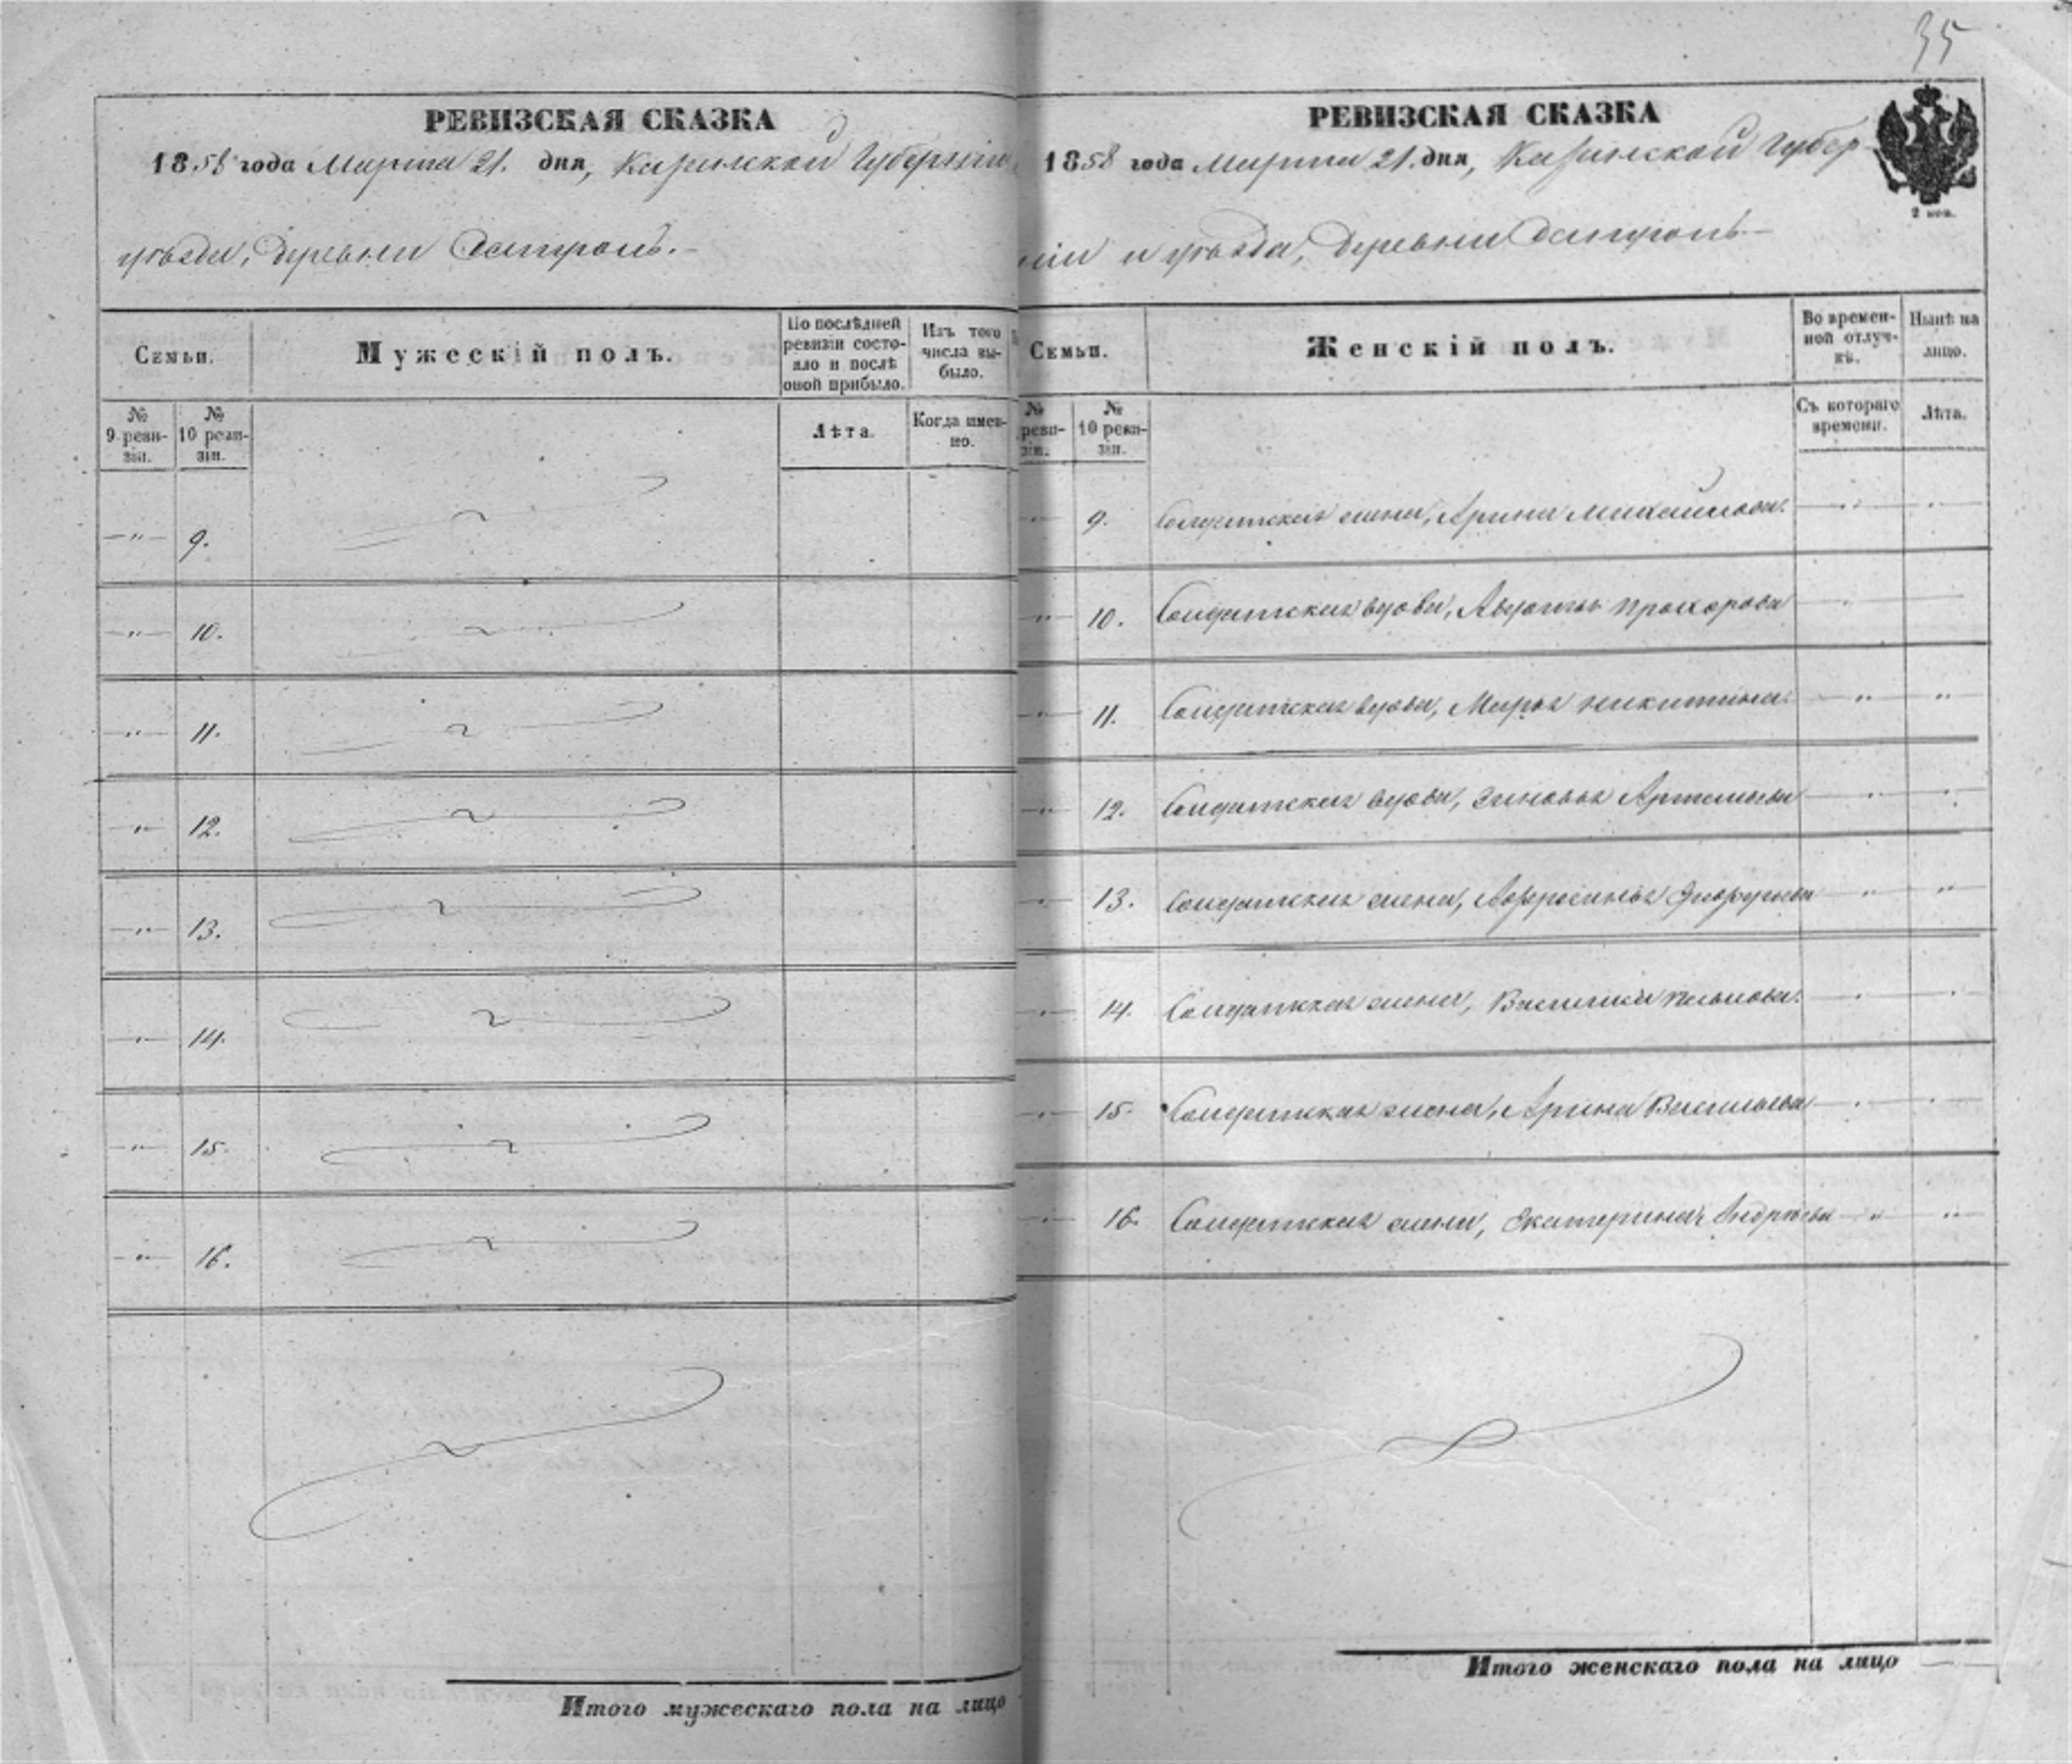 35
РЕВИЗСКАЯ СКАЗКА
1858 года Марта 21. дня, Казанской Губерніи
уѣзда, деревни
Семьи.
Мужескій полъ.
По послѣдней ревизіи состояло и послѣ оной прибыло.
Изъ того числа выбыло.
№ 9 ревизіи.
№ 10 ревизіи.
Лѣта.
Когда именно.
9.
10.
11.
12.
13.
14.
15.
16.
Итого мужескаго пола на лицо
РЕВИЗСКАЯ СКАЗКА
1858 года Марта 21. дня, Казанской Губер-
ніи и уѣзда, деревни
2 коп.
Семьи.
Женскій полъ.
Во временной отлучкѣ.
Нынѣ на лицо.
№ ревизіи.
№ 10 ревизіи.
Съ котораго времени.
Лѣта.
9. Солдатская жена, Арина Михайлова.
10. Солдатская вдова, Авдотья Прохорова
11. Солдатская вдова, Марья Никитина.
12. Солдатская вдова, Зиновья Артемьева
13. Солдатская жена, Афросинья
14. Солдатская жена, Василиса
15. Солдатская жена, Арина Васильева
16. Солдатская жена, Екатерина Андрѣева
Итого женскаго пола на лицо